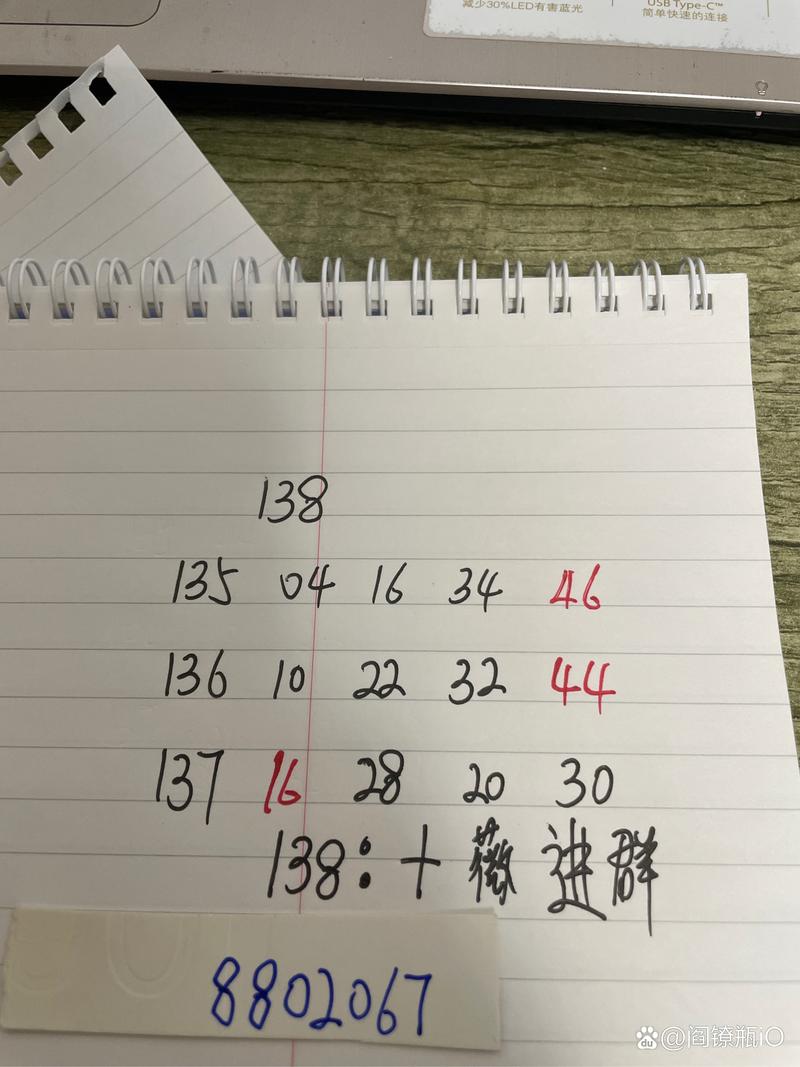 减少30%LED有害蓝光
USB Type-C™
简单快速的连接
138
135 04 16 34 46
136 10 22 32 44
137 16 28 20 30
138:十薇进群
8802067
du @阎镣瓶iO